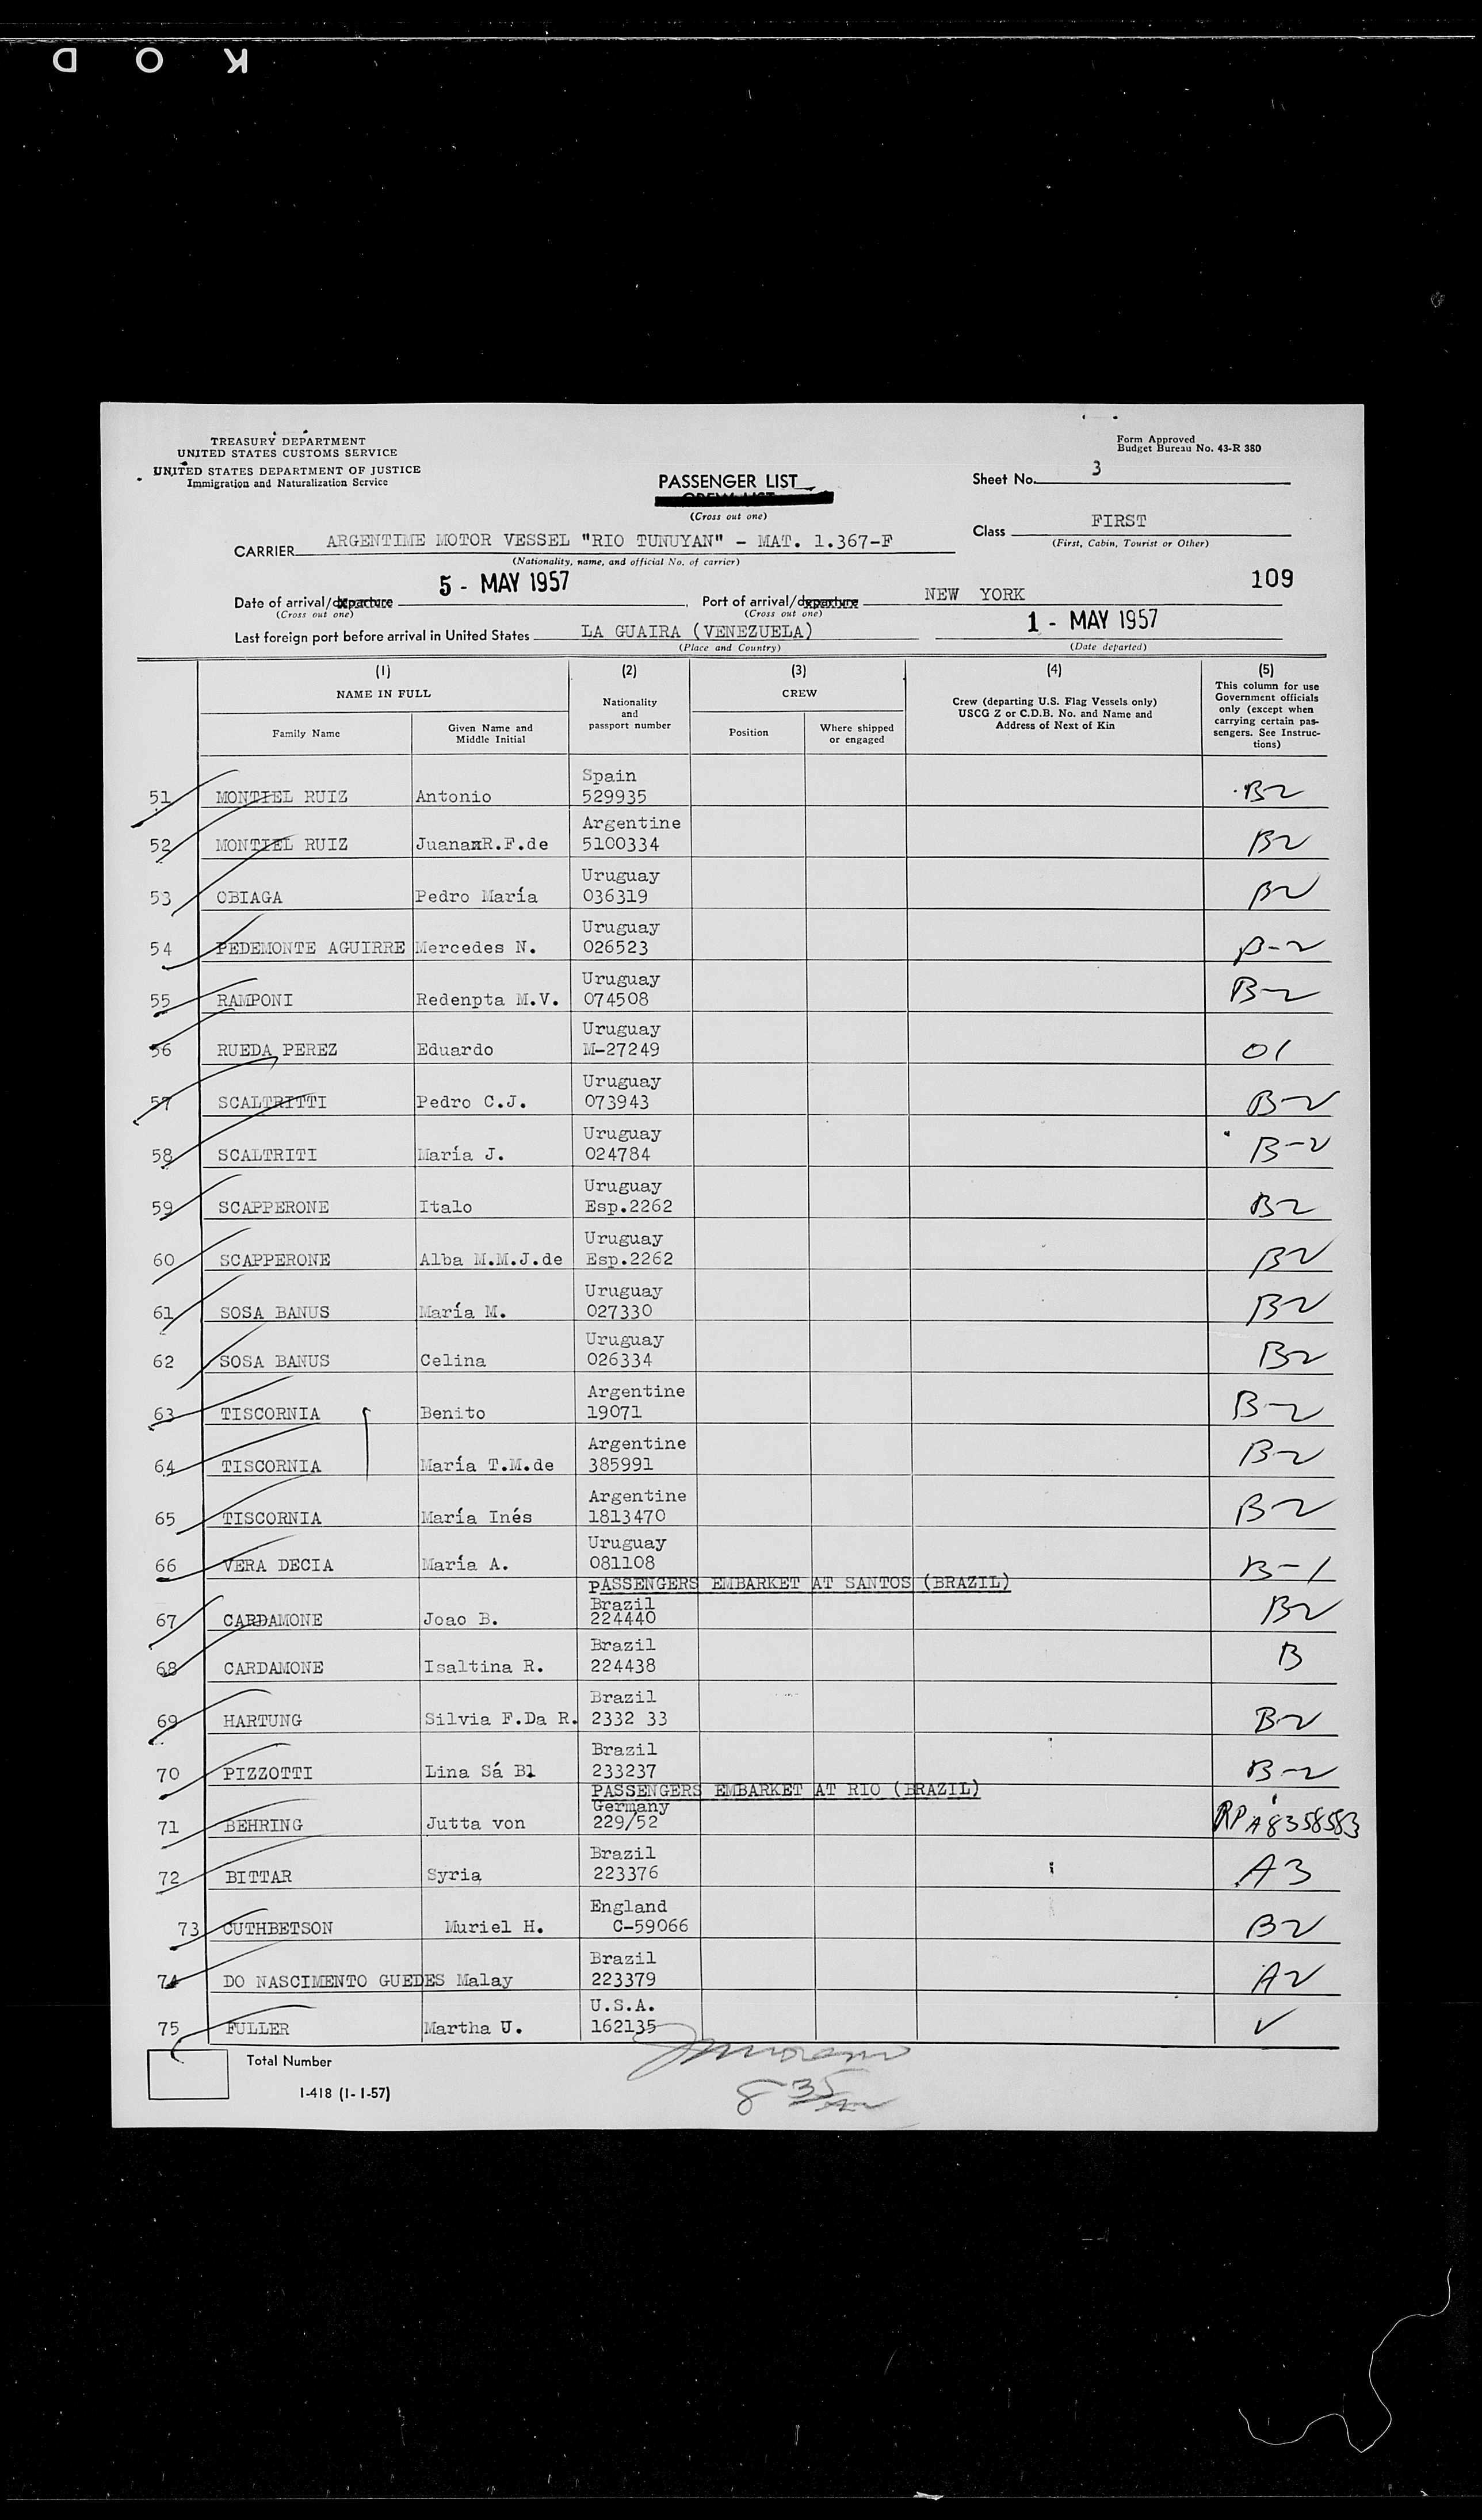 K O D
TREASURY DEPARTMENT
UNITED STATES CUSTOMS SERVICE
UNITED STATES DEPARTMENT OF JUSTICE
Immigration and Naturalization Service
Form Approved
Budget Bureau No. 43-R 380
PASSENGER LIST
CREW LIST
(Cross out one)
Sheet No. 3
Class FIRST
(First, Cabin, Tourist or Other)
CARRIER ARGENTIME MOTOR VESSEL "RIO TUNUYAN" - MAT. 1.367-F
(Nationality, name, and official No. of carrier)
109
Date of arrival/departure 5 - MAY 1957, Port of arrival/departure NEW YORK
(Cross out one) (Cross out one)
Last foreign port before arrival in United States LA GUAIRA (VENEZUELA) 1 - MAY 1957
(Place and Country) (Date departed)
(1) (2) (3) (4) (5)
NAME IN FULL
Family Name
Given Name and Middle Initial
Nationality and passport number
CREW
Position
Where shipped or engaged
Crew (departing U.S. Flag Vessels only)
USCG Z or C.D.B. No. and Name and
Address of Next of Kin
This column for use
Government officials
only (except when
carrying certain pas-
sengers. See Instruc-
tions)
51 MONTIEL RUIZ Antonio Spain 529935 B2
52 MONTIEL RUIZ JuanaxR.F.de Argentine 5100334 B2
53 OBIAGA Pedro María Uruguay 036319 B2
54 PEDEMONTE AGUIRRE Mercedes N. Uruguay 026523 B-2
55 RAMPONI Redenpta M.V. Uruguay 074508 B-2
56 RUEDA PEREZ Eduardo Uruguay M-27249 O1
57 SCALTRITTI Pedro C.J. Uruguay 073943 B-2
58 SCALTRITI María J. Uruguay 024784 B-2
59 SCAPPERONE Italo Uruguay Esp.2262 B2
60 SCAPPERONE Alba M.M.J.de Uruguay Esp.2262 B2
61 SOSA BANUS María M. Uruguay 027330 B2
62 SOSA BANUS Celina Uruguay 026334 B2
63 TISCORNIA Benito Argentine 19071 B-2
64 TISCORNIA María T.M.de Argentine 385991 B-2
65 TISCORNIA María Inés Argentine 1813470 B-2
66 VERA DECIA María A. Uruguay 081108 B-1
PASSENGERS EMBARKET AT SANTOS (BRAZIL)
67 CARDAMONE Joao B. Brazil 224440 B2
68 CARDAMONE Isaltina R. Brazil 224438 B
69 HARTUNG Silvia F.Da R. Brazil 2332 33 B-2
70 PIZZOTTI Lina Sá Bl Brazil 233237 B-2
PASSENGERS EMBARKET AT RIO (BRAZIL)
71 BEHRING Jutta von Germany 229/52 RP A8358583
72 BITTAR Syria Brazil 223376 A3
73 CUTHBETSON Muriel H. England C-59066 B2
74 DO NASCIMENTO GUEDES Malay Brazil 223379 A2
75 FULLER Martha U. U.S.A. 162135
Total Number
I-418 (1-1-57)
8 35